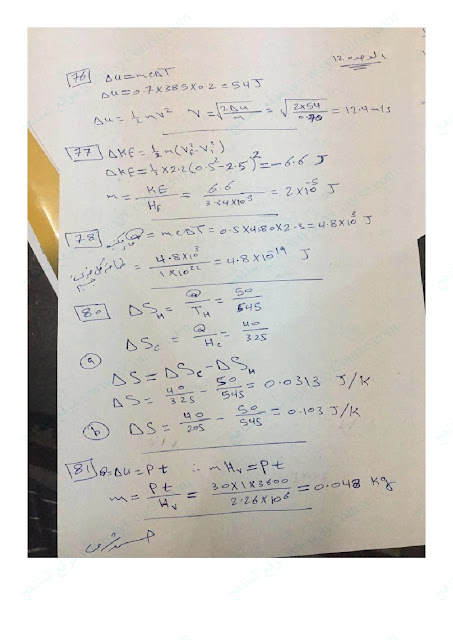 الوحدة 12
76 Δu = mcΔT
Δu = 0.7 × 385 × 0.2 = 54 J
Δu = ½ mv² V = √(2Δu/m) = √(2×54/0.70) = 12.4 m/s
77 ΔKE = ½ m(Vf² - Vi²)
ΔKE = ½ × 2.2 (0.5² - 2.5)² = -6.6 J
m = KE/Hf = 6.6/3.34×10⁵ = 2×10⁻⁵ J
78 Q = mcΔT = 0.5 × 4180 × 2.3 = 4.8×10³ J
= 4.8×10³/1×10²² = 4.8×10⁻¹⁹ J
80 ΔSH = Q/TH = 50/545
ΔSc = Q/Hc = 40/325
a
ΔS = ΔSc - ΔSH
ΔS = 40/325 - 50/545 = 0.0313 J/K
b ΔS = 40/205 - 50/545 = 0.103 J/K
81 Q = Δu = Pt ∴ mHv = Pt
m = Pt/Hv = 30×1×3600/2.26×10⁶ = 0.048 kg